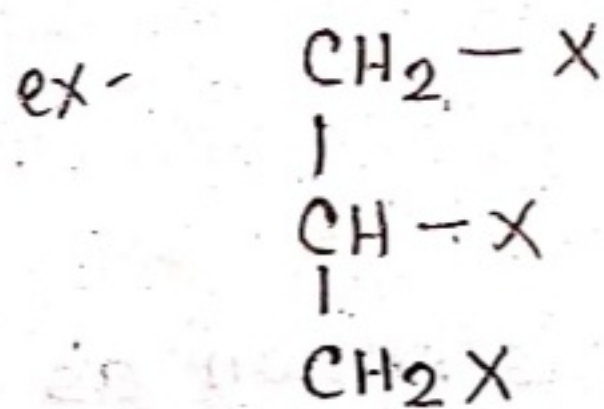 ex- CH2 - X
|
CH - X
|
CH2 X